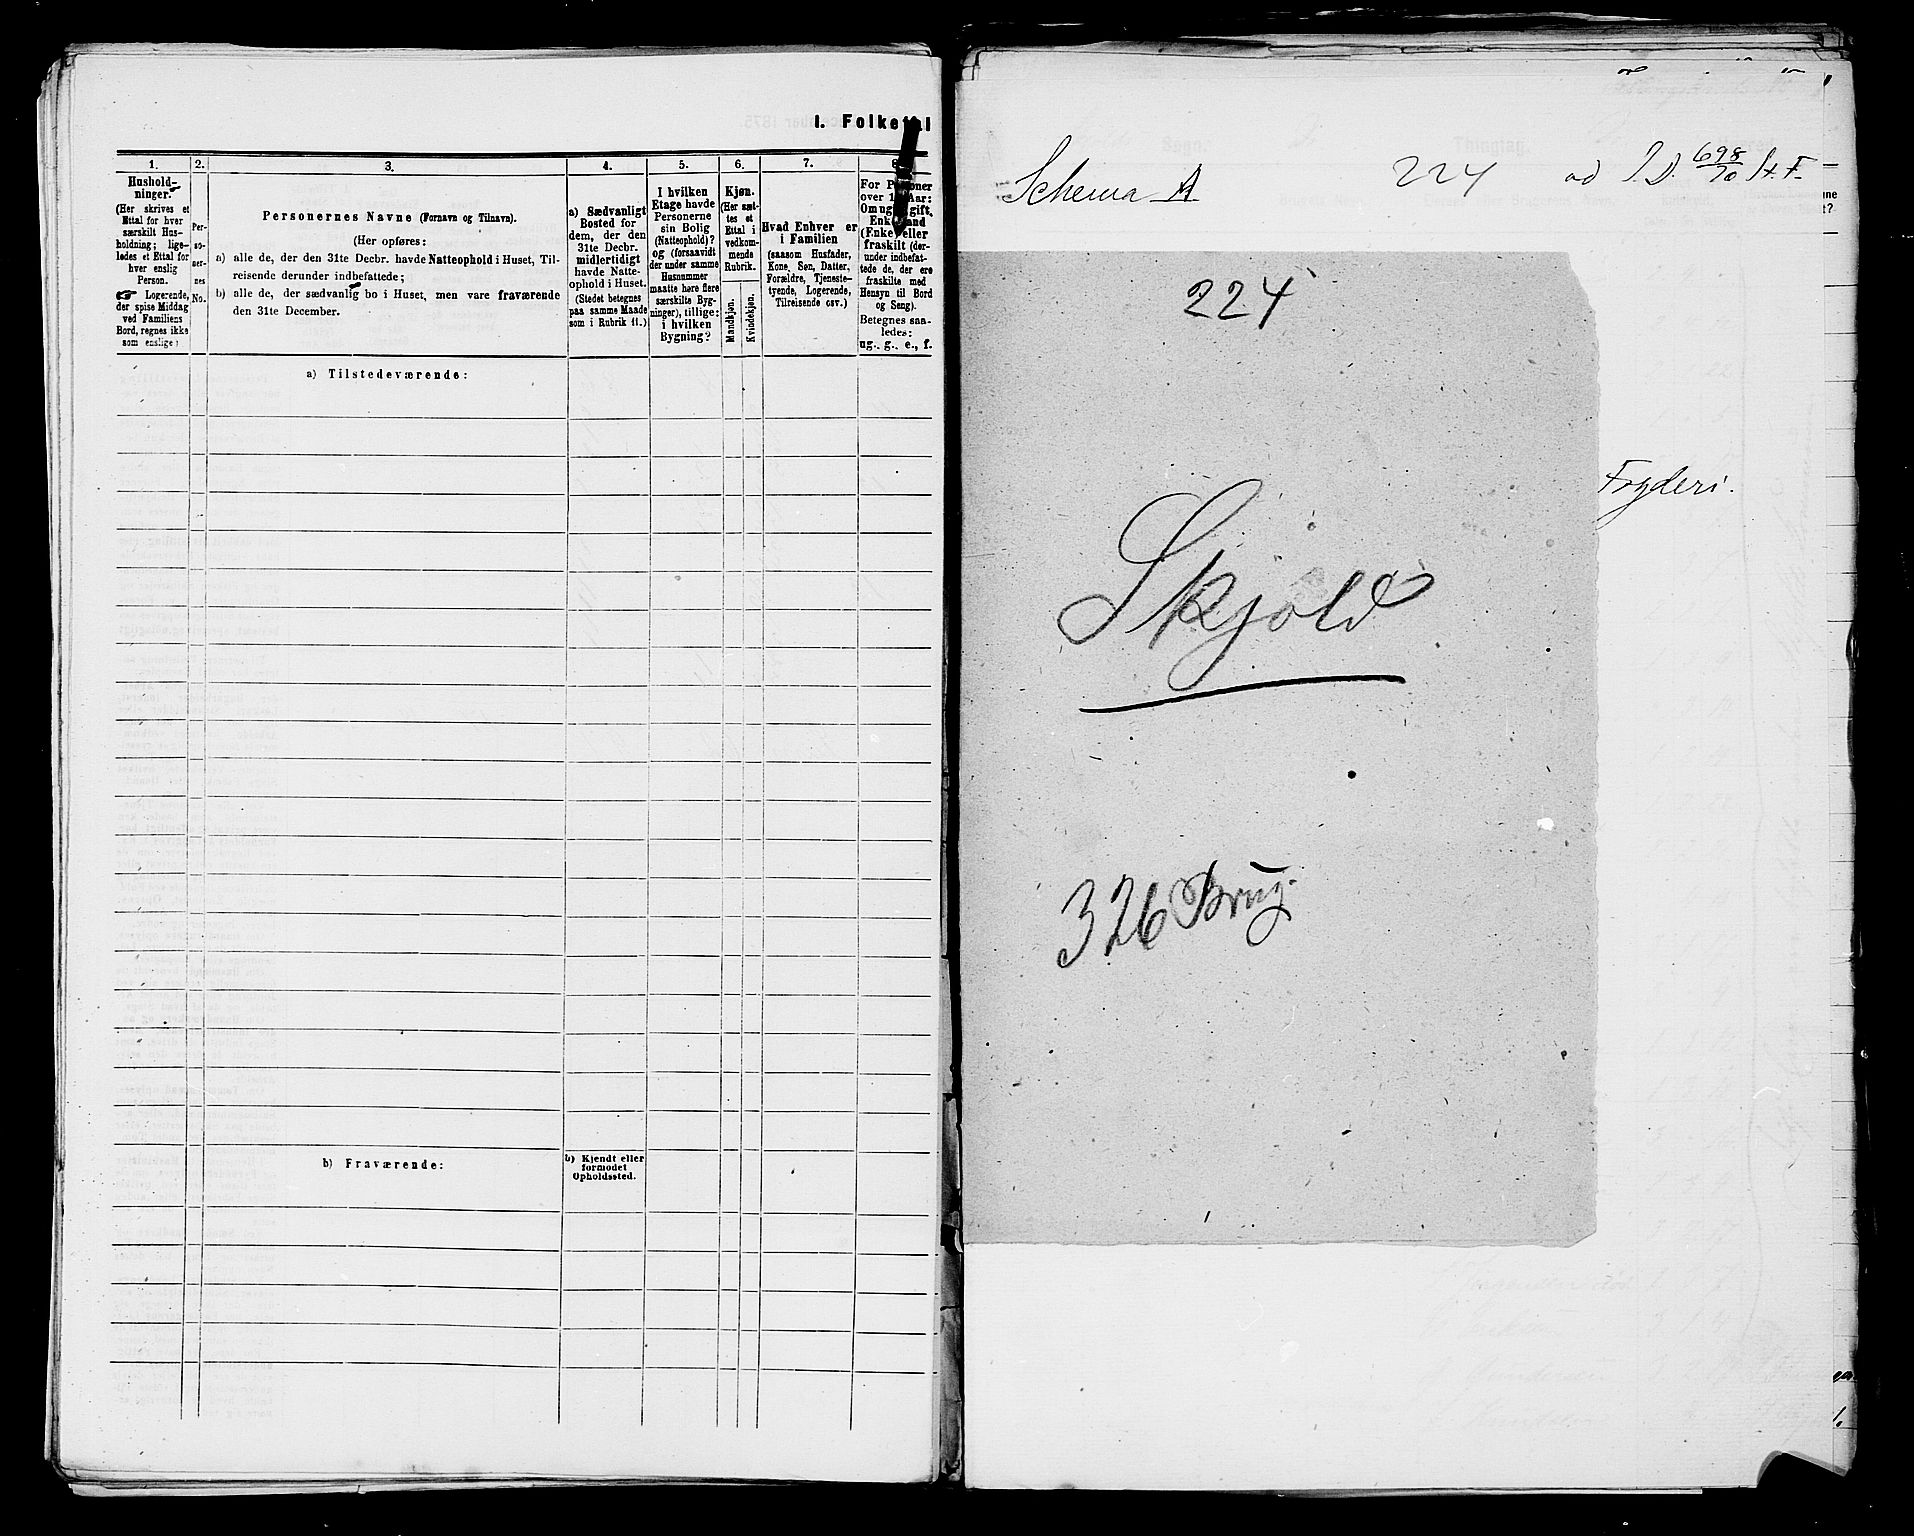 I. Folketal
1. 2. 3. 4. 5. 6. 7. 8.
Hushold-
ninger.
(Her skrives et
Ettal for hver
særskilt Hus-
holdning; lige-
ledes et Ettal for
hver enslig
Person.
Logerende,
der spise Middag
ved Familiens
Bord, regnes ikke
som enslige)
Per-
so-
ner-
nes
No.
Personernes Navne (Fornavn og Tilnavn).
(Her opføres:
a) alle de, der den 31te Decbr. havde Natteophold i Huset, Til-
reisende derunder indbefattede;
b) alle de, der sædvanlig bo i Huset, men vare fraværende
den 31te December.
a) Sædvanligt
Bosted for
dem, der den
31te Decbr.
midlertidigt
havde Natte-
ophold i Huset.
(Stedet betegnes
paa samme Maade
som i Rubrik 11.)
I hvilken
Etage havde
Personerne
sin Bolig
(Natteophold)?
og (forsaavidt
der under samme
Husnummer
maatte høre flere
særskilte Byg-
ninger), tillige:
i hvilken
Bygning?
Kjøn.
(Her sæt-
tes et
Ettal i
vedkom-
mende
Rubrik.
Mandkjøn.
Kvindekjøn.
Hvad Enhver er
i Familien
(saasom Husfader,
Kone, Søn, Datter,
Forældre, Tjeneste-
tyende, Logerende,
Tilreisende osv.)
For Personer
over Aar:
Om ugift, gift,
Enkemand
(Enke) eller
fraskilt (der-
under indbefat-
tede de, der ere
fraskilte med
Hensyn til Bord
og Seng).
Betegnes saa-
ledes:
ug., g., e., f.
a) Tilstedeværende:
b) Fraværende:
b) Kjendt eller
formodet
Opholdssted.
Schema A 224 ad J.D. 698/70 St. F.
224
Skjold
326 Brug.